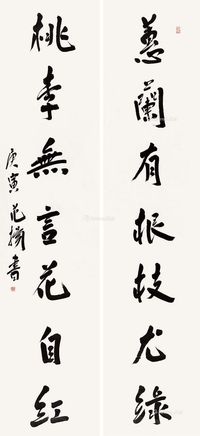 蕙蘭有根枝尤綠
桃李無言花自紅
庚寅范書